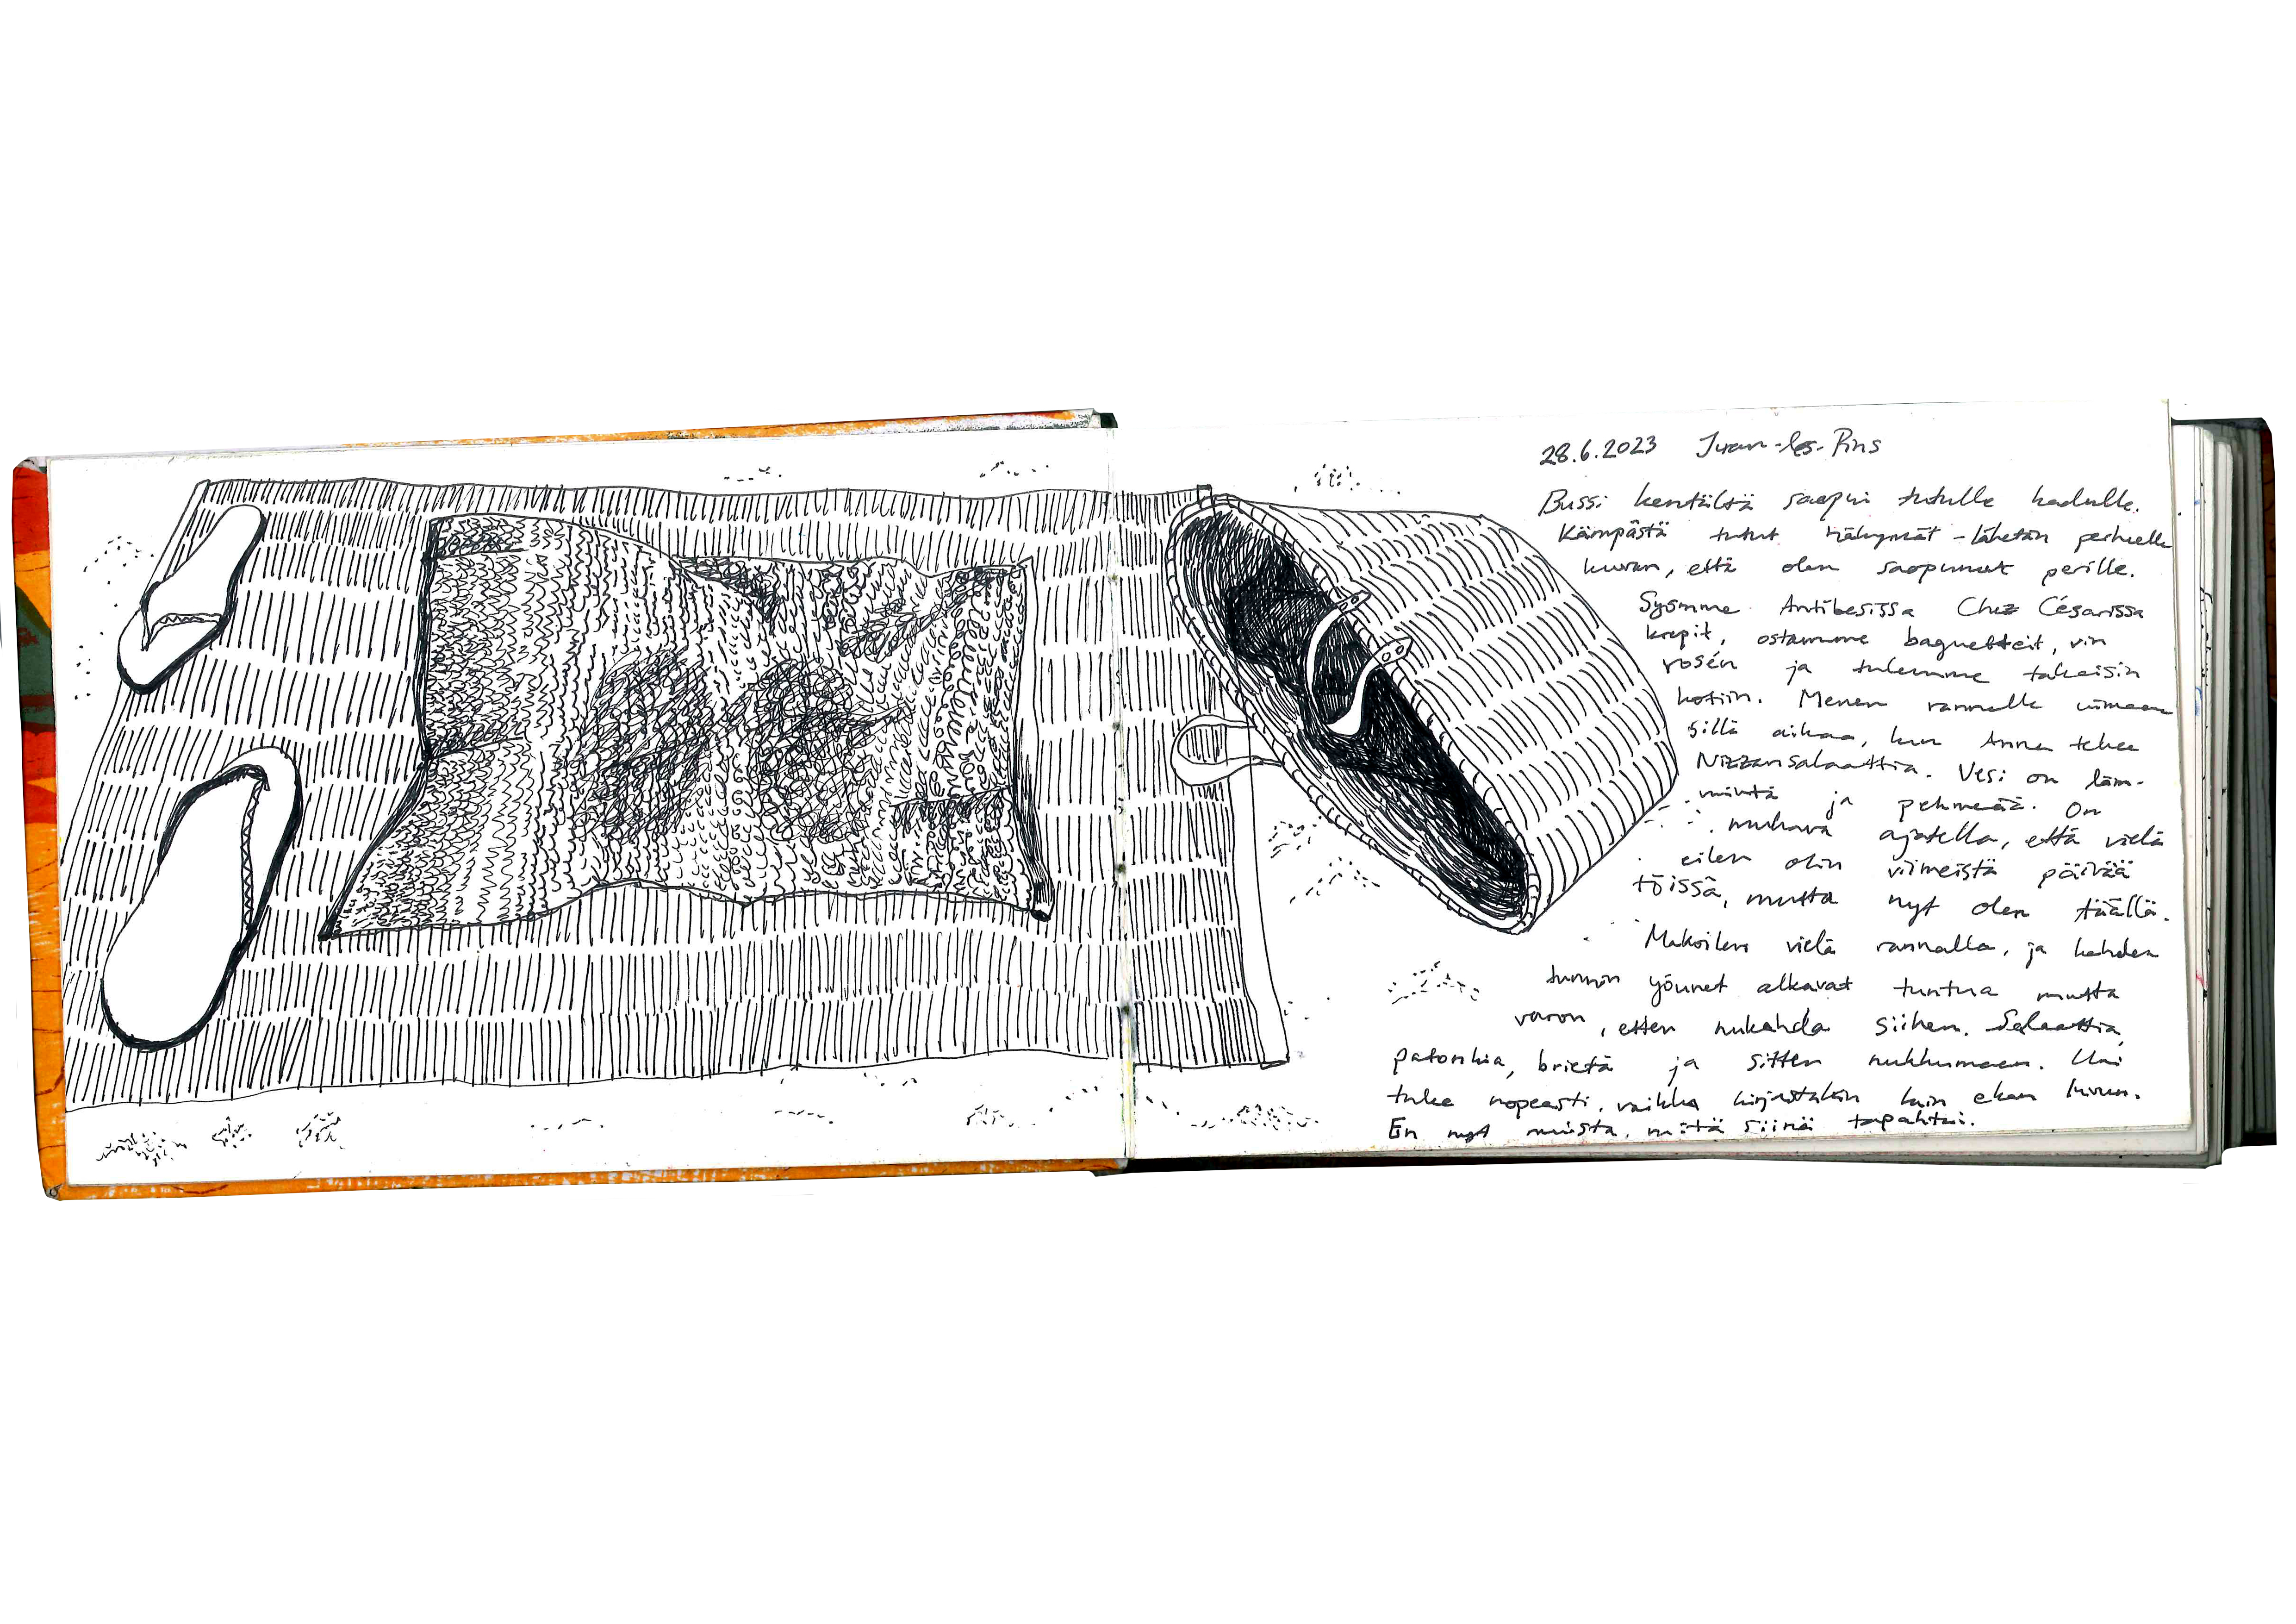 28.6.2023 Juan-les-Pins
Bussi kentältä saapui tutulle kadulle.
Kämpästä tutut näkymät - lähetän perheelle
kuvan, että olen saapunut perille.
Syömme Antibesissa Chez Césarissa
krepit, ostamme baguetteit, vin
rosén ja tulemme takaisin
kotiin. Menen rannalle uimaan
sillä aikaa, kun Anna tekee
Nizzansalaattia. Vesi on läm-
mintä ja pehmeää. On
mukava ajatella, että vielä
eilen olin viimeistä päivää
töissä, mutta nyt olen täällä.
Makoilen vielä rannalla, ja kahden
tunnin yöunet alkavat tuntua mutta
varon, etten nukahda siihen. Salaattia,
patonkia, brietä ja sitten nukkumaan. Uni
tulee nopeasti, vaikka kirjastakin luin ekan luvun.
En nyt muista, mitä siinä tapahtui.